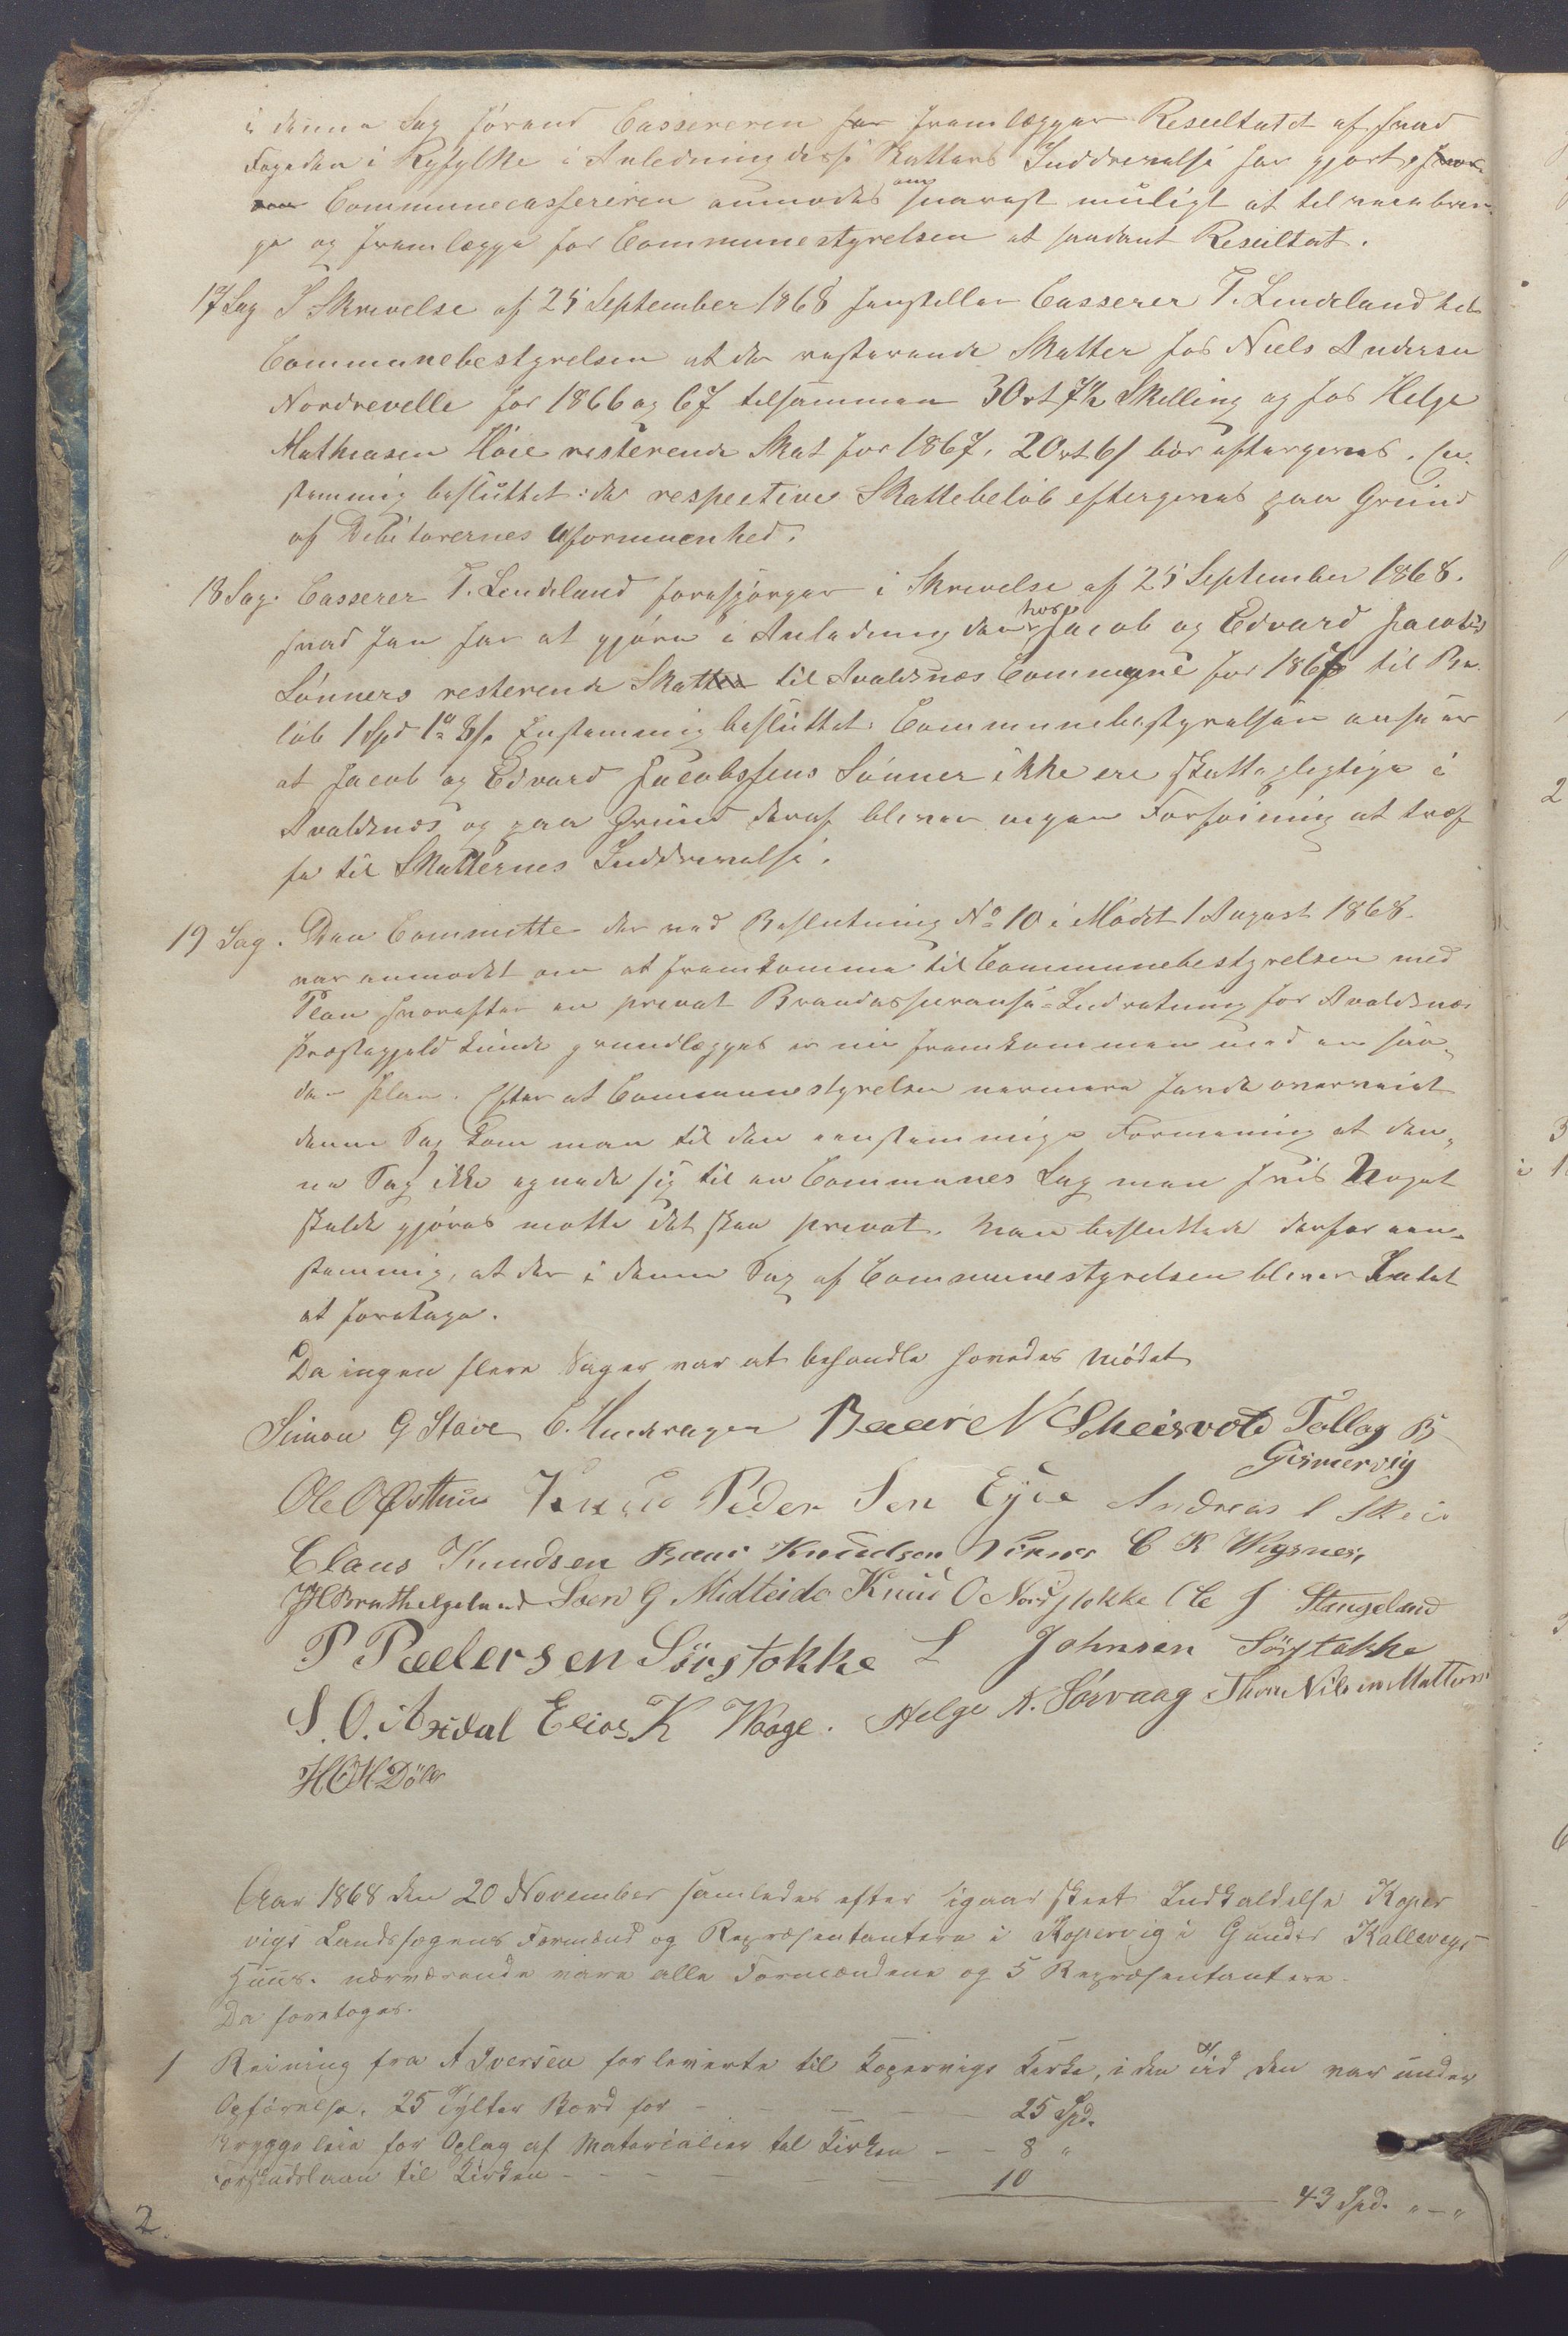 i denne Sag förend Cassereren har fremlægger Resultatet af hvad
Fogeden i Ryfylke i Anledning disse Skatters Inddrivelse har gjort,
Communecassereren anmodes om snarest muligt at tilveiebrin-
ge og fremlægge for Communestyrelsen et saadant Resultat.
17 Sag I Skrivelse af 25 September 1868 henstiller Casserer T. Lindeland til
Communebestyrelsen at de resterende Skatter hos Niels Andersen
Nordrevelle for 1866 og 67 tilsammen 3 Ort 7½ Skilling og hos Helge
Mathiasen Höie resterende Skat for 1867, 2 Ort 6 s bör eftergives. En-
stemmig besluttet: de respective Skattebelöb eftergives paa Grund
af Debitorernes Uformuenhed.
18 Sag. Casserer T. Lindeland forespörger i Skrivelse af 25 September 1868.
hvad han har at gjöre i Anledning den hos Jacob og Edvard Jacobs
Sönners resterende Skat til Avaldsnæs Commune for 1867 til Be-
löb 1 Spd 1 Ort 8 s. Enstemmig besluttet: Communebestyrelsen anseer
at Jacob og Edvard Jacobssens Sönner ikke ere skattepligtige i
Avaldsnæs og paa Grund deraf bliver ingen Forföining at træf
fe til Skatternes Inddrivelse.
19 Sag. Den Committe der ved Beslutning No 10 i Mödet 1 August 1868
var anmodet om at fremkomme til Communebestyrelsen med
Plan hvorefter en privat Brandassuranse-Indretning for Avaldsnæs
Præstegjeld kunde grundlægges er nu fremkommen med en saa-
dan Plan. Efter at Communestyrelsen nærmere havde overveiet
denne Sag kom man til den eenstemmige Formening at den-
ne Sag ikke egnede sig til en Communes Sag men hvis Noget
skulde gjöres maatte det skee privat. Man besluttede derfor een-
stemmig, at der i denne Sag af Communestyrelsen bliver Intet
at foretage.
Da ingen flere Sager var at behandle hævedes Mödet
Simon G Stave E. Hindragen Baar N Scheisvold Tollag B
Gismervig
Ole O Østhuus Knud Peder Sen Eyde Andreas L Skeie
Claus Knudsen Baar Knudsen C K Wigsnes,
J H Bratthelgeland Svend G Midteide Knud O Nordstokke Ole J Stangeland
P Pedersen Sörstokke L Johnsen Sörstokke
S. O. Axdal Elias K Waage. Helge N. Sörvaag Thore Nilsen
H O H Döle
Aar 1868 den 20 November samledes efter igaar skeet Indkaldelse Koper
vigs Landssogens Formænd og Repræsentantere i Kopervig i Gunder Kallevigs
Huus. nærværende vare alle Formændene og 5 Repræsentantere.
Da foretoges.
1 Reining fra A Iversen for leverte til Kopervigs Kirke, i den Tid den var under
Opförelse. 25 Tylter Bord for - - - 25 Spd.
Bryggeleie for Oplag af Materialier til Kirken - - 8 "
Forskudslaan til Kirken - - - 10
43 Spd. " - "
2.